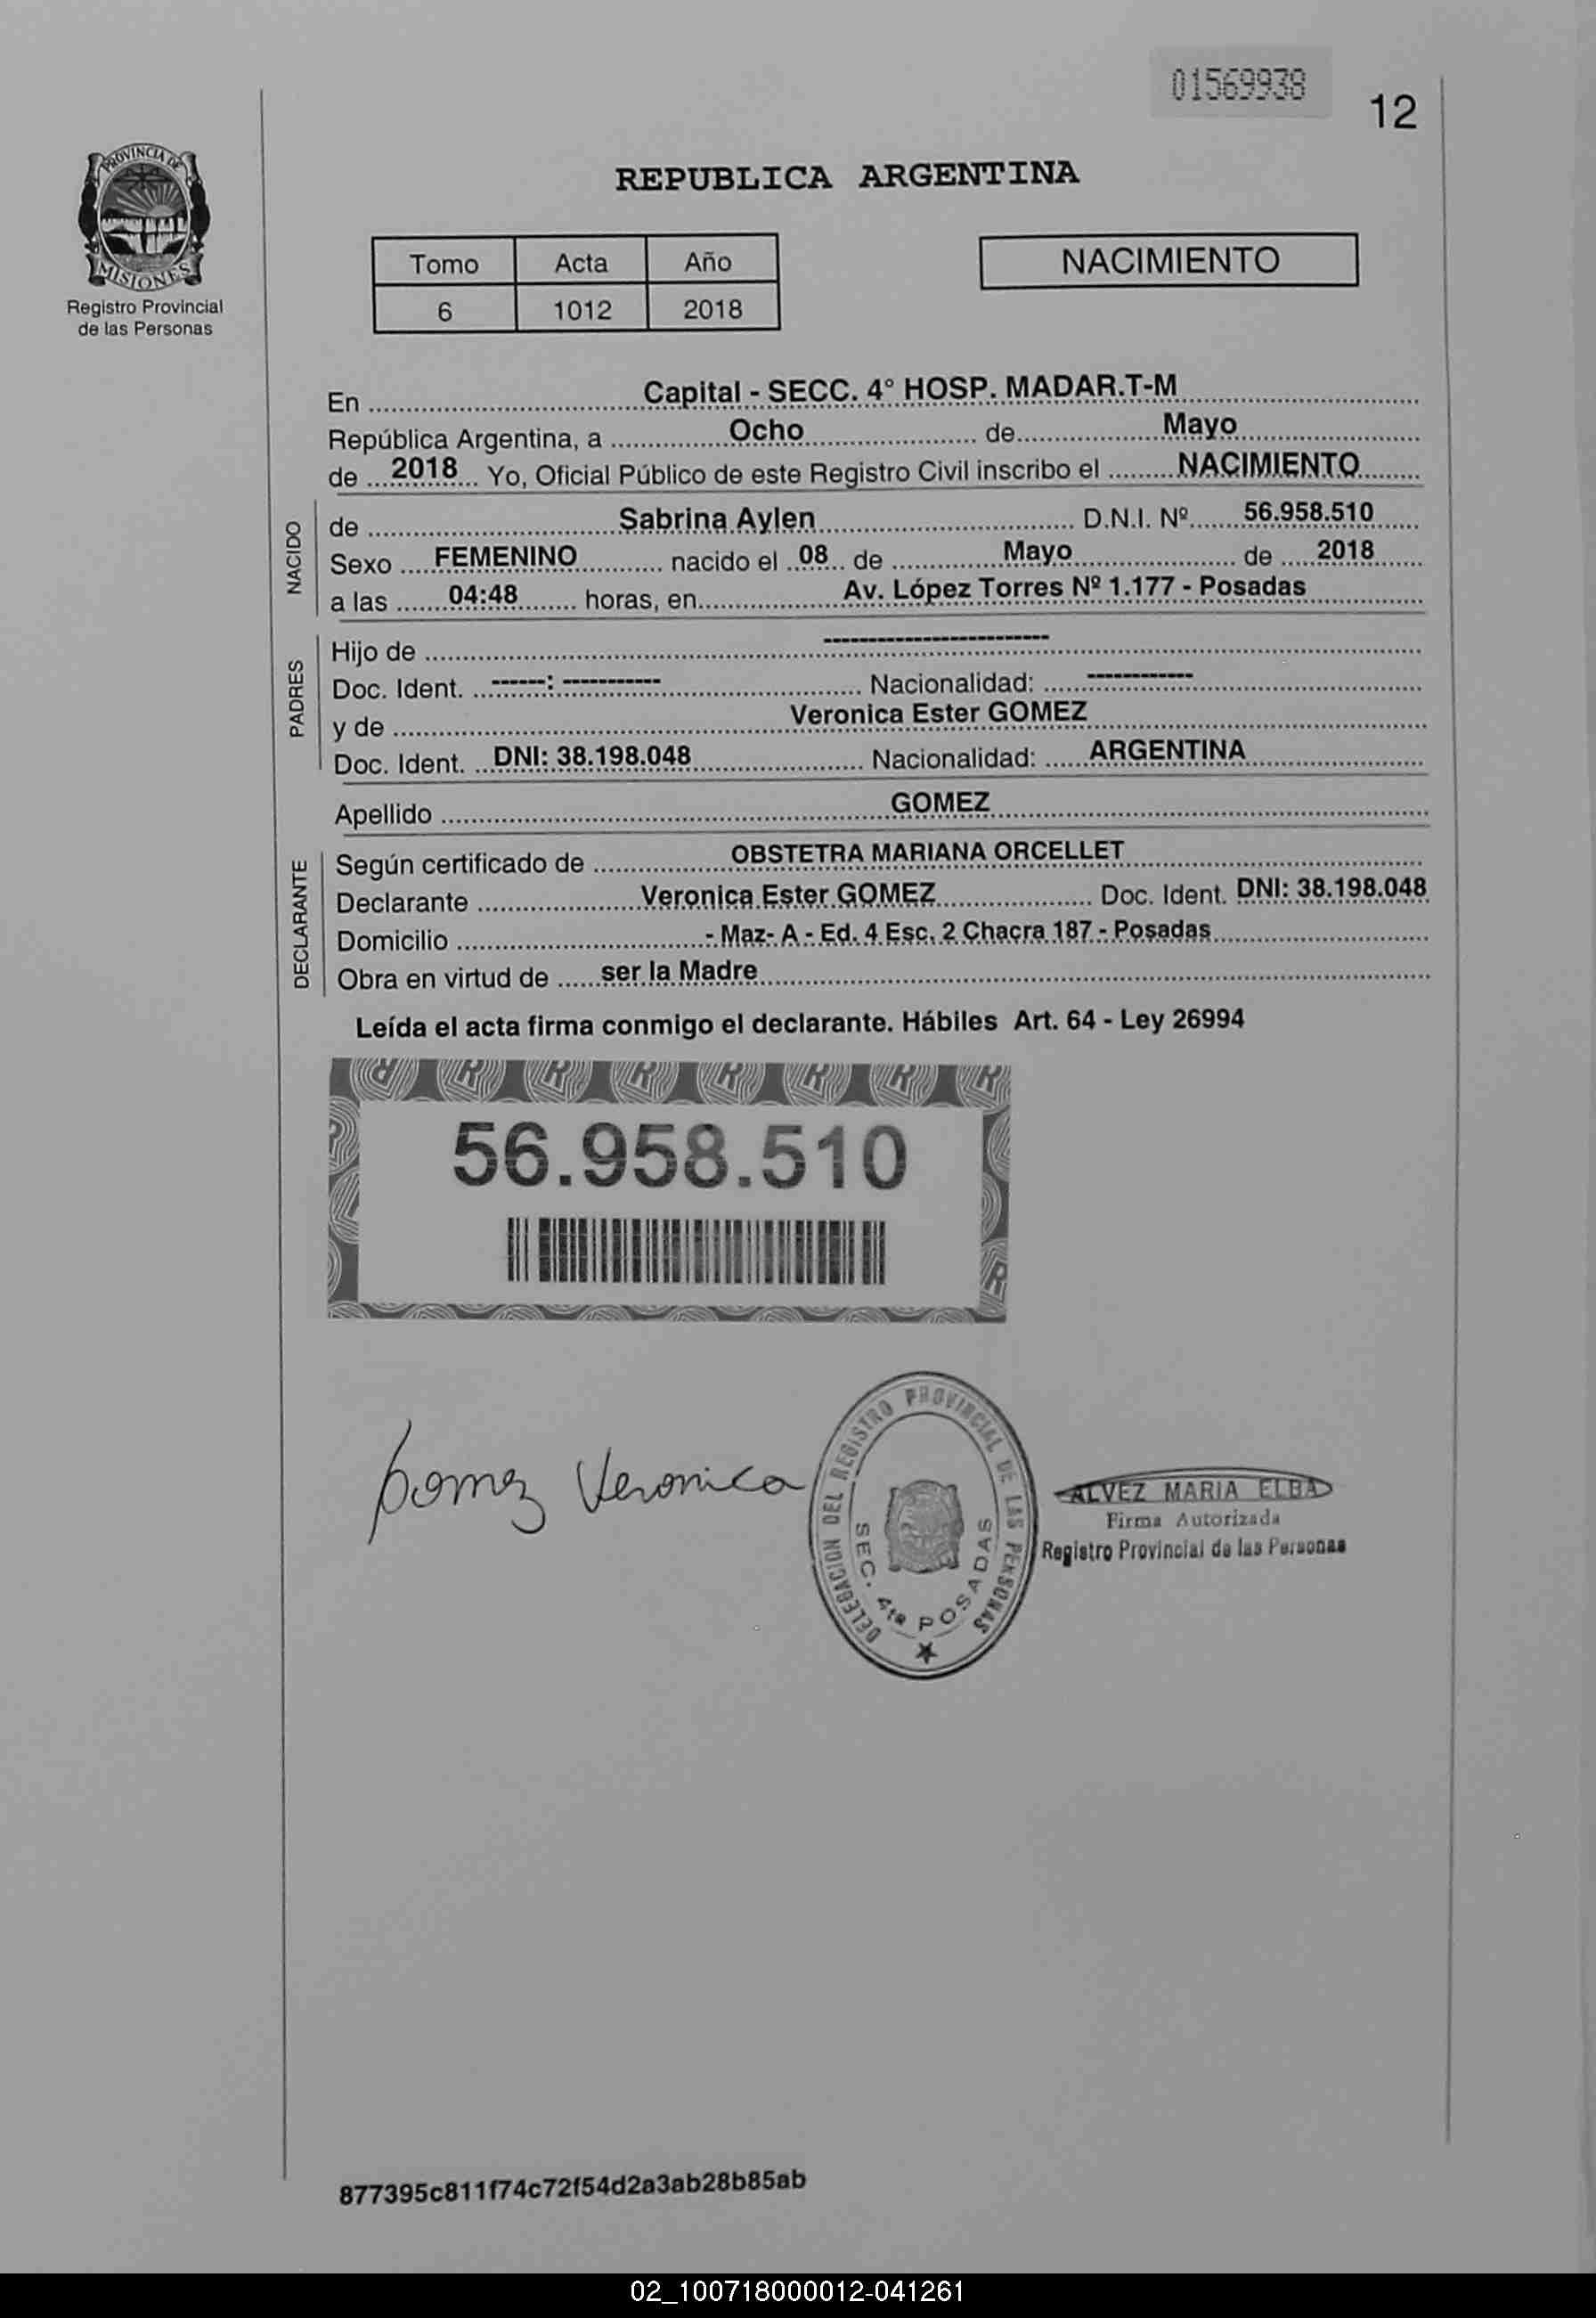 01569938
12
PROVINCIA DE
MISIONES
Registro Provincial
de las Personas
REPUBLICA ARGENTINA
Tomo Acta Año
6 1012 2018
NACIMIENTO
En Capital - SECC. 4° HOSP. MADAR.T-M
República Argentina, a Ocho de Mayo
de 2018 Yo, Oficial Público de este Registro Civil inscribo el NACIMIENTO
NACIDO
de Sabrina Aylen D.N.I. Nº 56.958.510
Sexo FEMENINO nacido el 08 de Mayo de 2018
a las 04:48 horas, en Av. López Torres Nº 1.177 - Posadas
PADRES
Hijo de -------------------------
Doc. Ident. ------: ----------- Nacionalidad: ------------
y de Veronica Ester GOMEZ
Doc. Ident. DNI: 38.198.048 Nacionalidad: ARGENTINA
Apellido GOMEZ
DECLARANTE
Según certificado de OBSTETRA MARIANA ORCELLET
Declarante Veronica Ester GOMEZ Doc. Ident. DNI: 38.198.048
Domicilio - Maz- A - Ed. 4 Esc. 2 Chacra 187 - Posadas
Obra en virtud de ser la Madre
Leída el acta firma conmigo el declarante. Hábiles Art. 64 - Ley 26994
56.958.510
Gomez Veronica
DELEGACION DEL REGISTRO PROVINCIAL DE LAS PERSONAS
SEC. 4ta POSADAS
ALVEZ MARIA ELBA
Firma Autorizada
Registro Provincial de las Personas
877395c811f74c72f54d2a3ab28b85ab
02_100718000012-041261